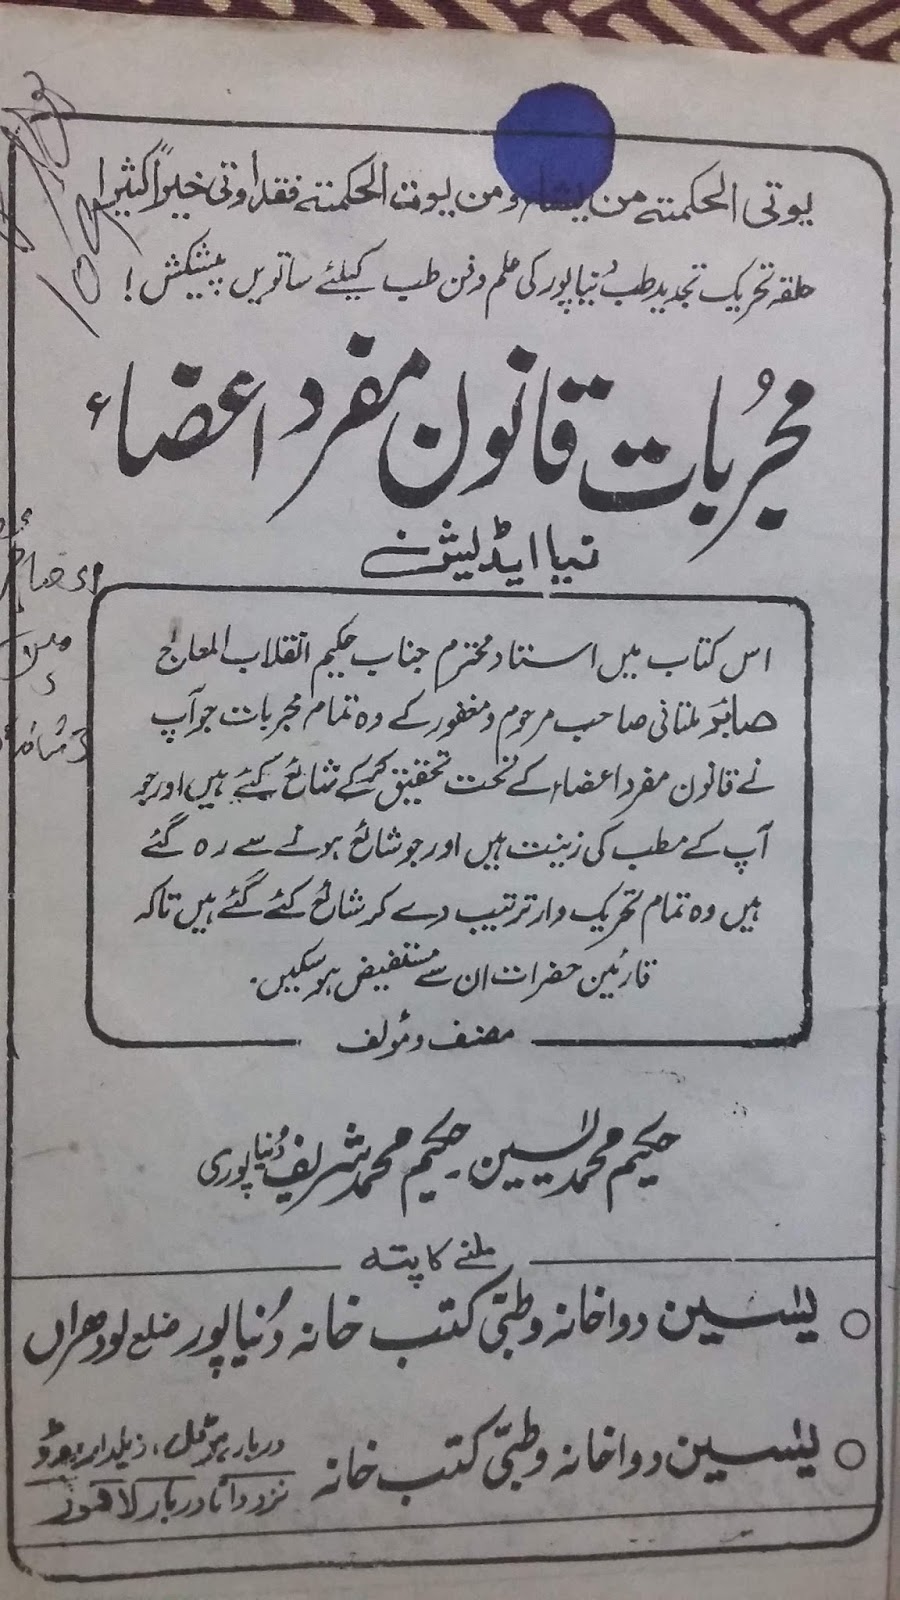 یوتی الحکمتہ من یشاء ومن یوت الحکمتہ فقد اوتی خیراً کثیرا
حلقہ تحریک تجدید طب دُنیاپور کی علم و فن طب کیلئے ساتویں پیشکش!
مجرُبات قانون مفرد اعضاء
نیا ایڈیشن
اس کتاب میں استاد محترم جناب حکیم انقلاب المعالج
صابر ملتانی صاحب مرحوم و مغفور کے وہ تمام مجربات جو آپ
نے قانون مفرد اعضاء کے تحت تحقیق کرکے شائع کئے ہیں اور جو
آپ کے مطب کی زینت ہیں اور جو شائع ہونے سے رہ گئے
ہیں وہ تمام تحریک وار ترتیب دے کر شائع کئے گئے ہیں تاکہ
قارئین حضرات ان سے مستفیض ہو سکیں.
مصنف و مولف
حکیم محمد یٰسین . حکیم محمد شریف دُنیاپوری
ملنے کا پتہ
○ یٰسین دواخانہ و طبّی کتب خانہ دُنیاپور ضلع لودھراں
○ یٰسین دواخانہ و طبّی کتب خانہ
دربار ہوٹل، ذیلدار روڈ
نزد داتا دربار لاہور